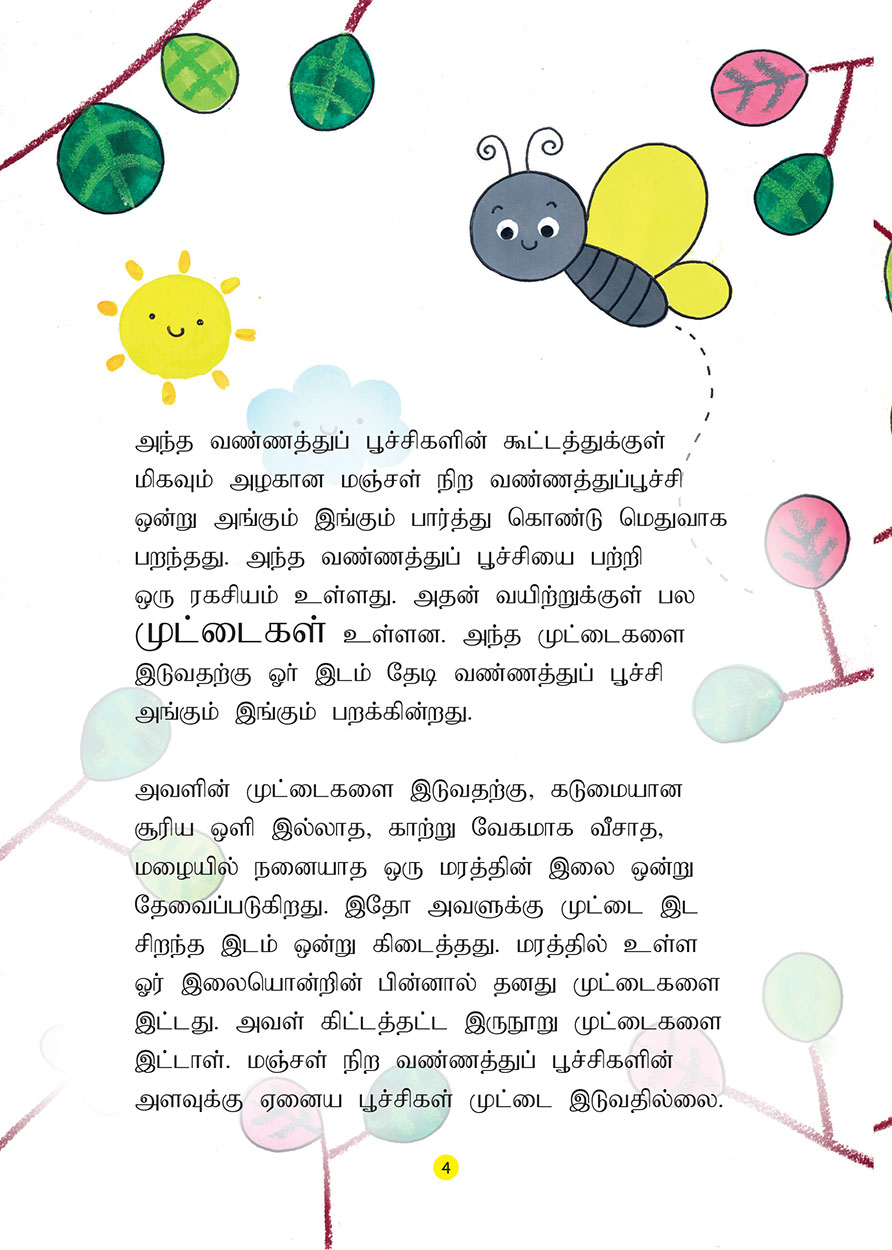 அந்த வண்ணத்துப் பூச்சிகளின் கூட்டத்துக்குள்
மிகவும் அழகான மஞ்சள் நிற வண்ணத்துப்பூச்சி
ஒன்று அங்கும் இங்கும் பார்த்து கொண்டு மெதுவாக
பறந்தது. அந்த வண்ணத்துப் பூச்சியை பற்றி
ஒரு ரகசியம் உள்ளது. அதன் வயிற்றுக்குள் பல
முட்டைகள் உள்ளன. அந்த முட்டைகளை
இடுவதற்கு ஓர் இடம் தேடி வண்ணத்துப் பூச்சி
அங்கும் இங்கும் பறக்கின்றது.
அவளின் முட்டைகளை இடுவதற்கு, கடுமையான
சூரிய ஒளி இல்லாத, காற்று வேகமாக வீசாத,
மழையில் நனையாத ஒரு மரத்தின் இலை ஒன்று
தேவைப்படுகிறது. இதோ அவளுக்கு முட்டை இட
சிறந்த இடம் ஒன்று கிடைத்தது. மரத்தில் உள்ள
ஓர் இலையொன்றின் பின்னால் தனது முட்டைகளை
இட்டது. அவள் கிட்டத்தட்ட இருநூறு முட்டைகளை
இட்டாள். மஞ்சள் நிற வண்ணத்துப் பூச்சிகளின்
அளவுக்கு ஏனைய பூச்சிகள் முட்டை இடுவதில்லை.
4